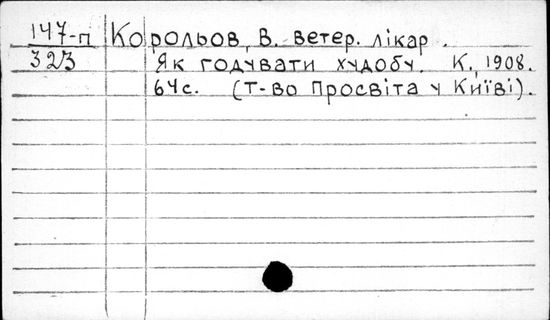 147-п Корольов, В. ветер. лікар.
323 Як годувати худобу. К, 1908.
64с. (Т-во Просвіта у Київі).